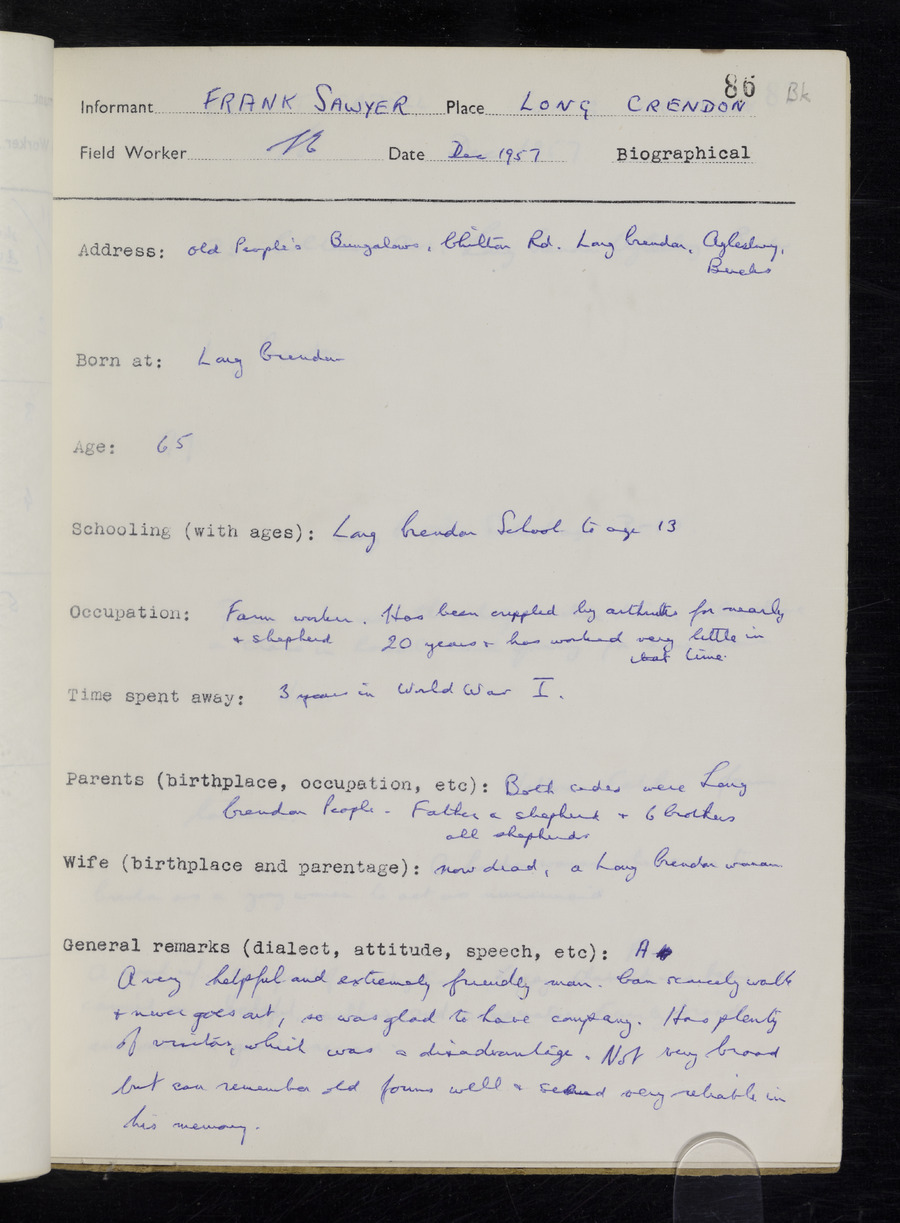 86 Bk
Informant FRANK SAWYER Place LONG CRENDON
Field Worker Date Dec 1957 Biographical
Address: Old People's Bungalows, Chilton Rd. Long Crendon, Aylesbury,
Bucks
Born at: Long Crendon
Age: 65
Schooling (with ages): Long Crendon School to age 13
Occupation: Farm worker. Has been crippled by arthritis for nearly
+ shepherd 20 years + has worked very little in
that time.
Time spent away: 3 years in World War I.
Parents (birthplace, occupation, etc): Both sides were Long
Crendon People - Father a shepherd + 6 brothers
all shepherds
Wife (birthplace and parentage): now dead, a Long Crendon woman
General remarks (dialect, attitude, speech, etc): A
A very helpful and extremely friendly man. Can scarcely walk
+ never goes out, so was glad to have company. Has plenty
of visitors, which was a disadvantage. Not very broad
but can remember old forms well + seemed very reliable in
his memory.